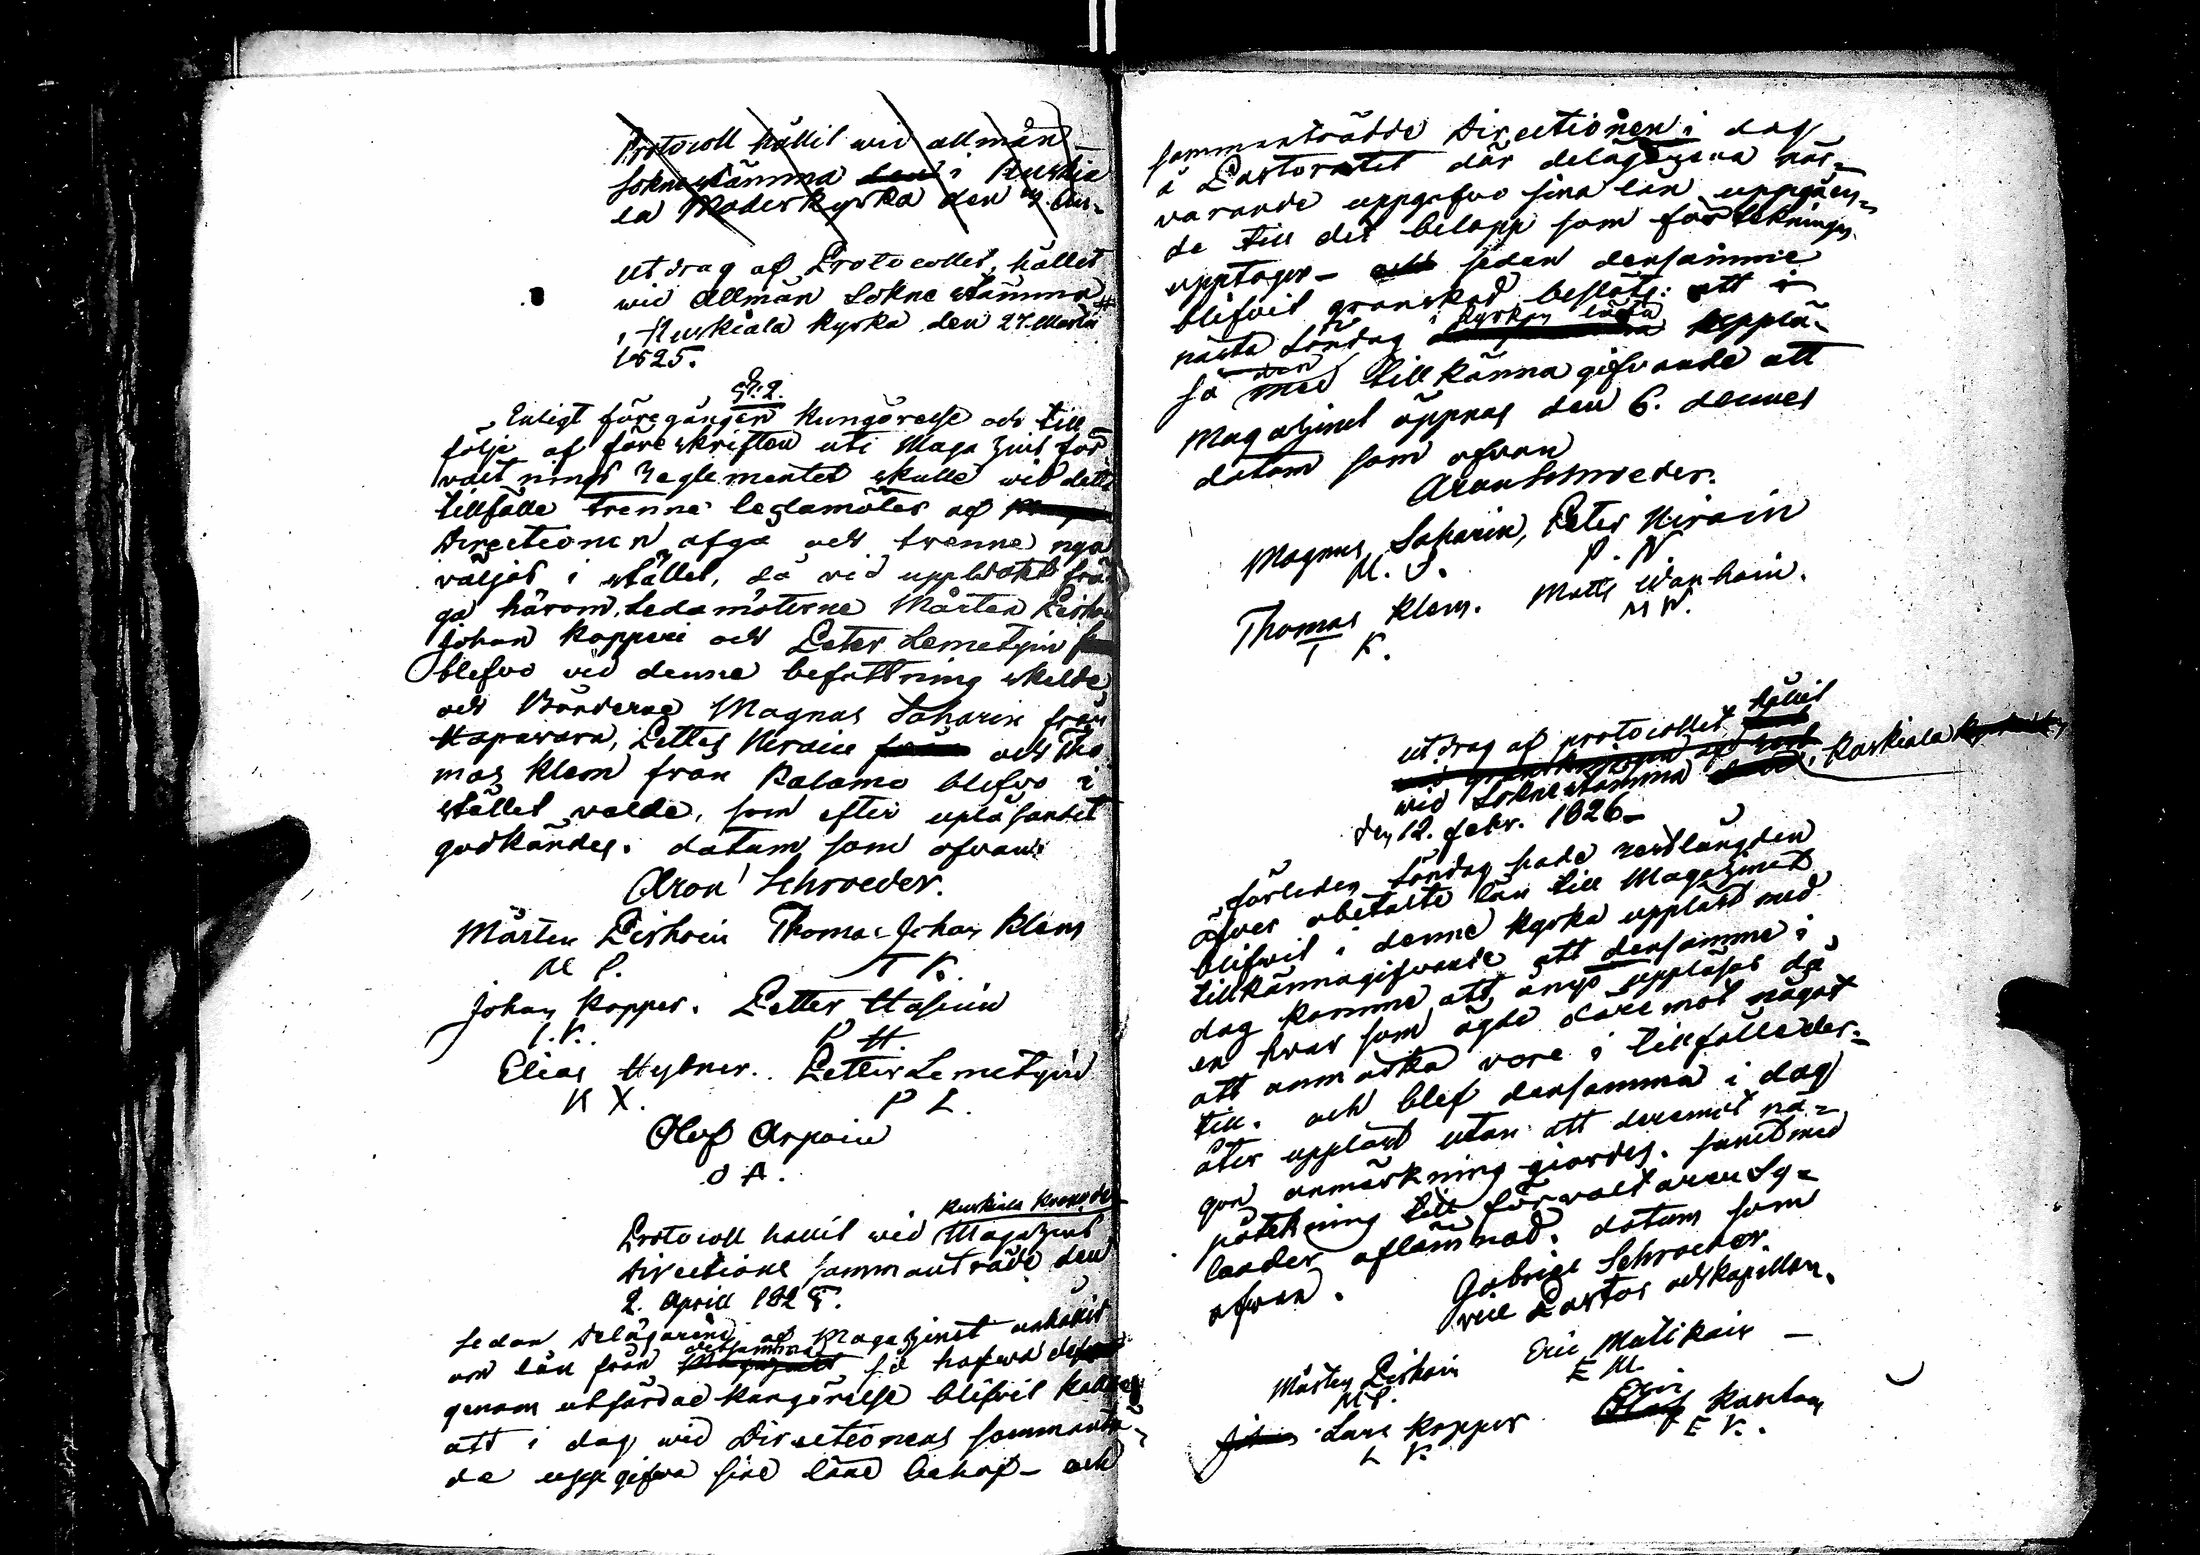 Protocoll hållit wid allmän
sokne stämma i Ruskia
la Moderkyrka den 27.
utdrag af Protocollet, hållet
wid Allmän Sokne stämma
i Ruskiala kyrka den 27. Martii
1825.
§. 2.
Enligt föregången kungörelse och till
följe af föreskriften uti Magazins för
valtnings Reglementet skulle wid detta
tillfälle trenne ledamöter af
Directionen afgå och trenne nya
väljas i stället, då vid uppwäkt frå
ga härom, Ledamöterne Mårten
Johan Kopponen och Peter Lemetyin
blefvo vid denne befattning skilde
och Bönderne Magnus Saharin från
Haparara, Petter Nirain och Tho
mas Klem från Kalamo blefvo i
stället valde, som efter upläsandet
godkändes. datum som ofvan
Aron Schroeder.
Mårten Peshoin Thomas Johan Klem
M P. T K.
Johan Kopper. Petter Hasuin
I. K. P H.
Elias Hybner. Petter Lemetyin
P L.
Olof Arpoin
O A.
Ruskiala
Protocoll hållit wid Magazins
Directions sammanträde den
2. Aprill 1825.
Sedan Delägarene af Magazinet anhållit
om lån från detsamma så hafwa
genom utfärdad kungörelse blifvit kallade
att i dag wid Directionens sammanträ
de uppgifva sine låne behof - och
sammanträdde Directionen i dag
å Pastoratet där delägarena när-
varande uppgofvo sina lån uppgåen-
de till det belopp som förtekningen
upptager - sedan densamme
blifvit granskad beslöts: att i
nästa Söndag i kyrkan låta upplä-
sa den med tillkännagifvande att
Magazinet öppnas den 6. dennes
datum som ofvan
Aron Schroeder.
Magnus Saharin, Peter Nirain
M. S. P. N
Thomas Klem. Matts Wanhain.
T K. M W.
utdrag af protocollet hållit
wid Sokne stämma i Ruskiala
den 12. febr. 1826-
förleden Söndag hade restlängden
öfver obetalte lån till Magazinet
blifvit i denne kyrka uppläst med
tillkännagifvande att densamme i
dag komme att ånyo uppläsas då
en hvar som ägde däremot något
att anmärka vore i tillfälle der-
till. och blef densamma i dag
åter uppläst utan att deremot nå-
gon anmärkning giordes. samt med
påtekning till förvaltaren Sy-
lander aflämnad. datum som
ofvan.
Gabriel Schroeder.
vice Pastor och kapellan.
Mårten Peshoin Eric Matikain
M P. E M
Lars Kopper Eric Kantan
L K. E K.